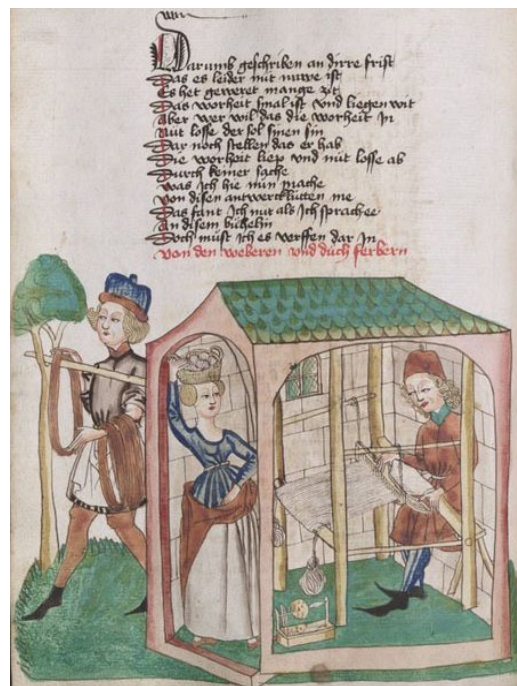 Darumb geschriben an dirre frist
Das es leider nut nuwe ist
Es het geweret mange zit
Das worheit smal ist vnd liegen wit
Aber wer wil das die worheit in
Nüt losse der sol sinen sin
Dar noch stellen das er hab
Die worheit liep vnd nüt losse ab
Durch keiner sache
was ich hie nün mache
von disen antwercklütten me
Das fant ich nut als ich sprach ee
An disem büchelin
Doch müst ich es werffen dar in
von den weberen vnd düch ferbern